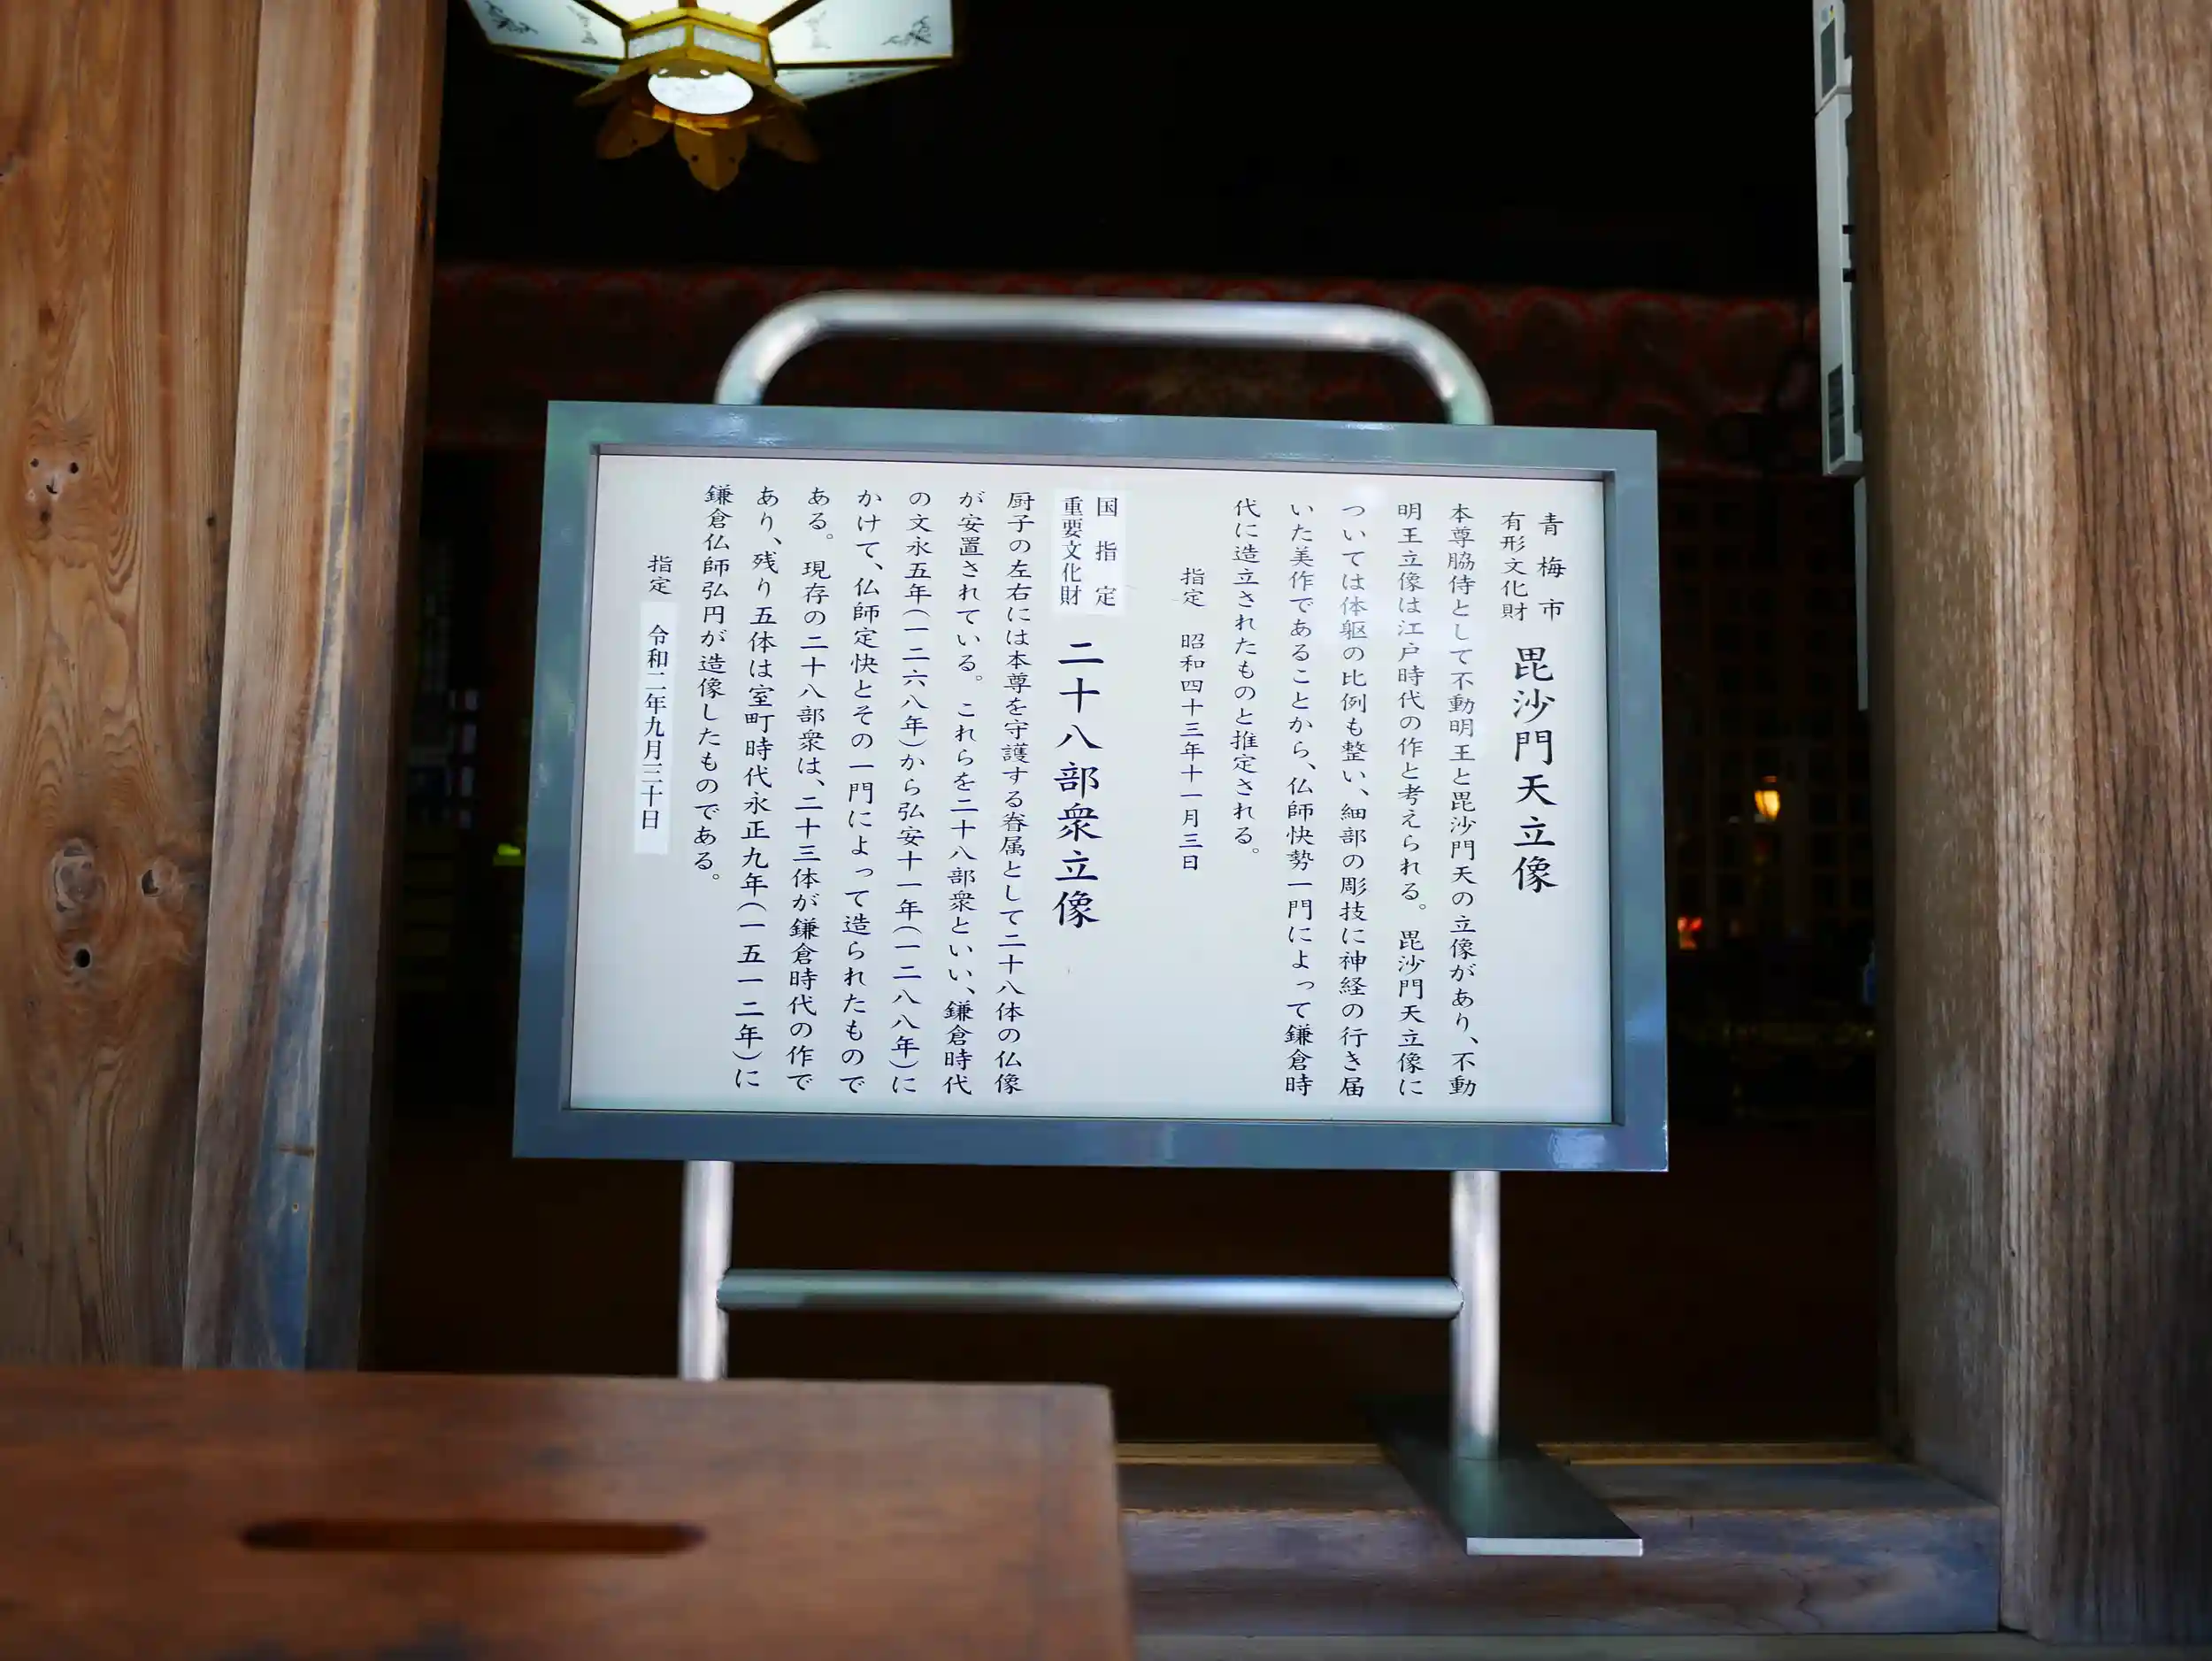 青梅市
有形文化財
毘沙門天立像
本尊脇侍として不動明王と毘沙門天の立像があり、不動
明王立像は江戸時代の作と考えられる。毘沙門天立像に
ついては体躯の比例も整い、細部の彫技に神経の行き届
いた美作であることから、仏師快勢一門によって鎌倉時
代に造立されたものと推定される。
指定 昭和四十三年十一月三日
国指定
重要文化財
二十八部衆立像
厨子の左右には本尊を守護する眷属として二十八体の仏像
が安置されている。これらを二十八部衆といい、鎌倉時代
の文永五年(一二六八年)から弘安十一年(一二八八年)に
かけて、仏師定快とその一門によって造られたもので
ある。現存の二十八部衆は、二十三体が鎌倉時代の作で
あり、残り五体は室町時代永正九年(一五一二年)に
鎌倉仏師弘円が造像したものである。
指定 令和二年九月三十日